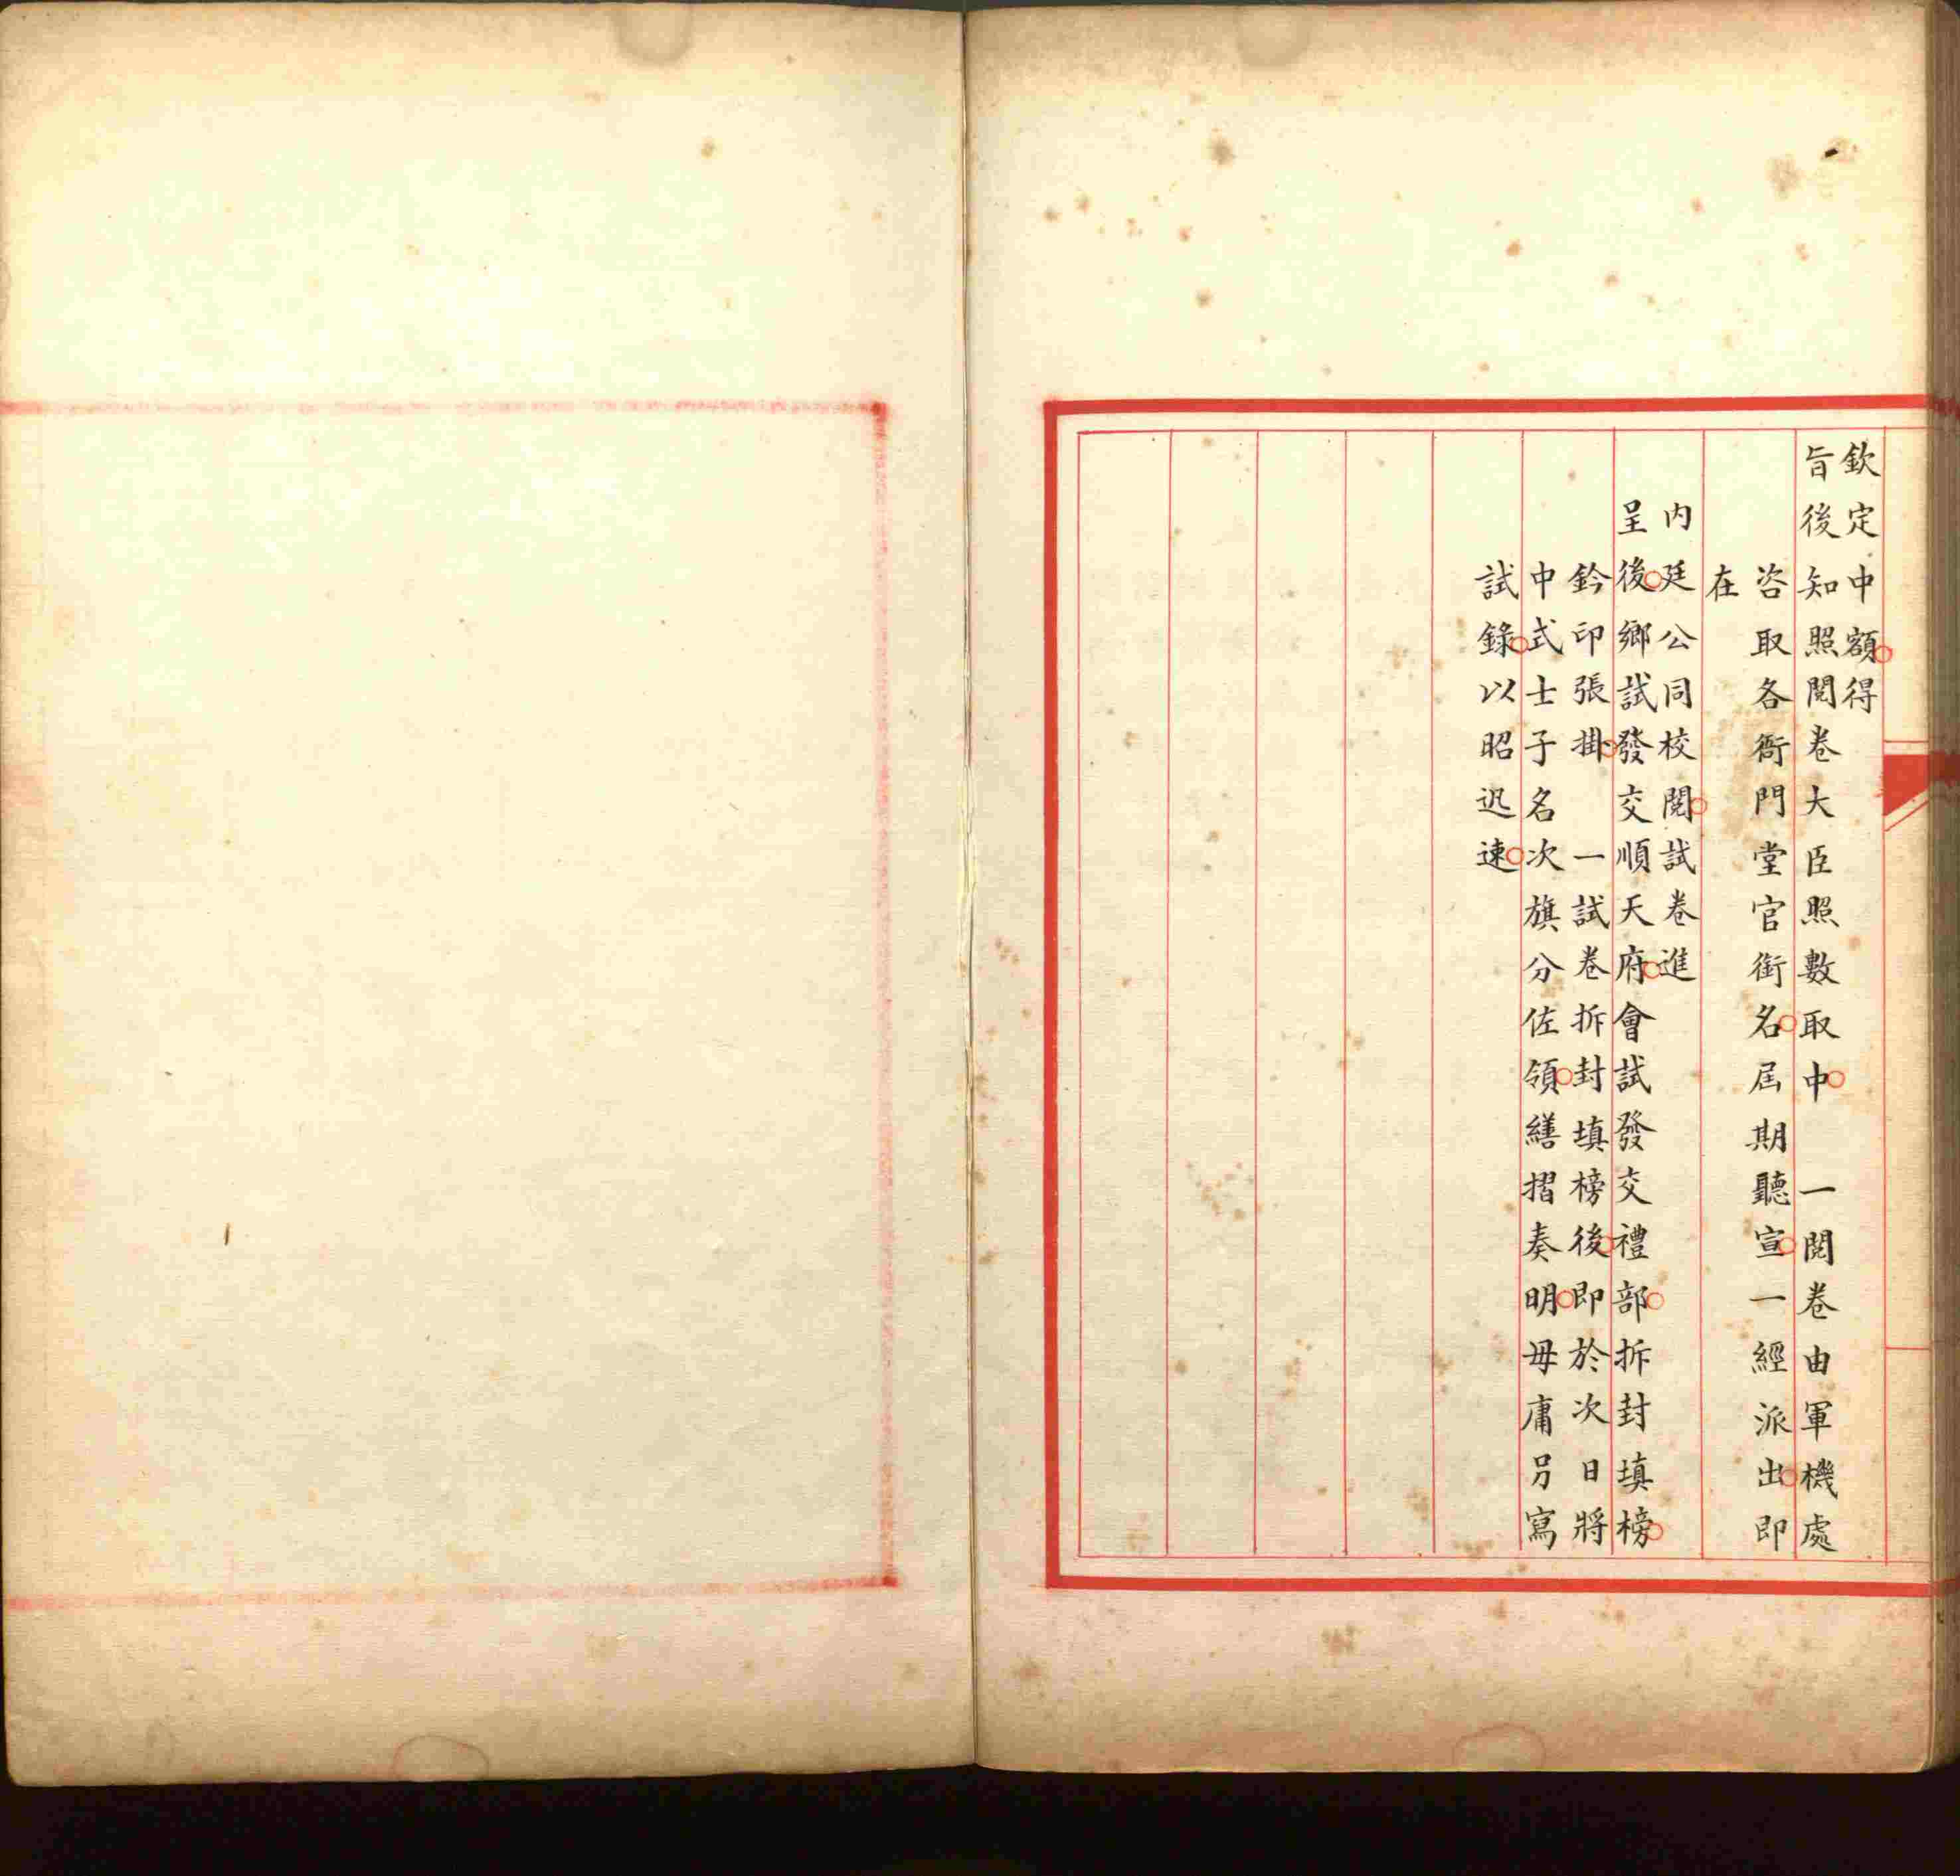 欽定中額得
旨後知照閱卷大臣照數取中　一閱卷由軍機處
咨取各衙門堂官銜名屆期聽宣一經派出即
在
內廷公同校閱試卷進
呈後鄉試發交順天府會試發交禮部拆封填榜
鈐印張掛　一試卷拆封填榜後即於次日將
中式士子名次旗分佐領繕摺奏明毋庸另寫
試錄以昭迅速